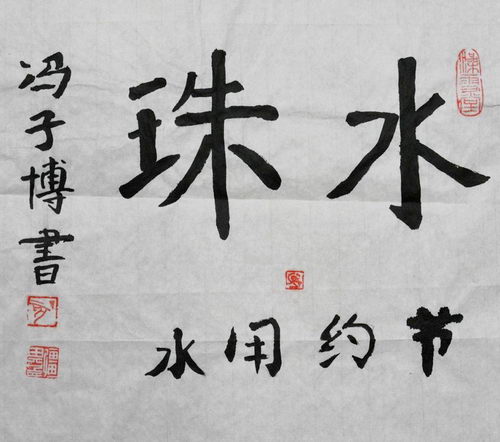 水珠
节约用水
冯子博書